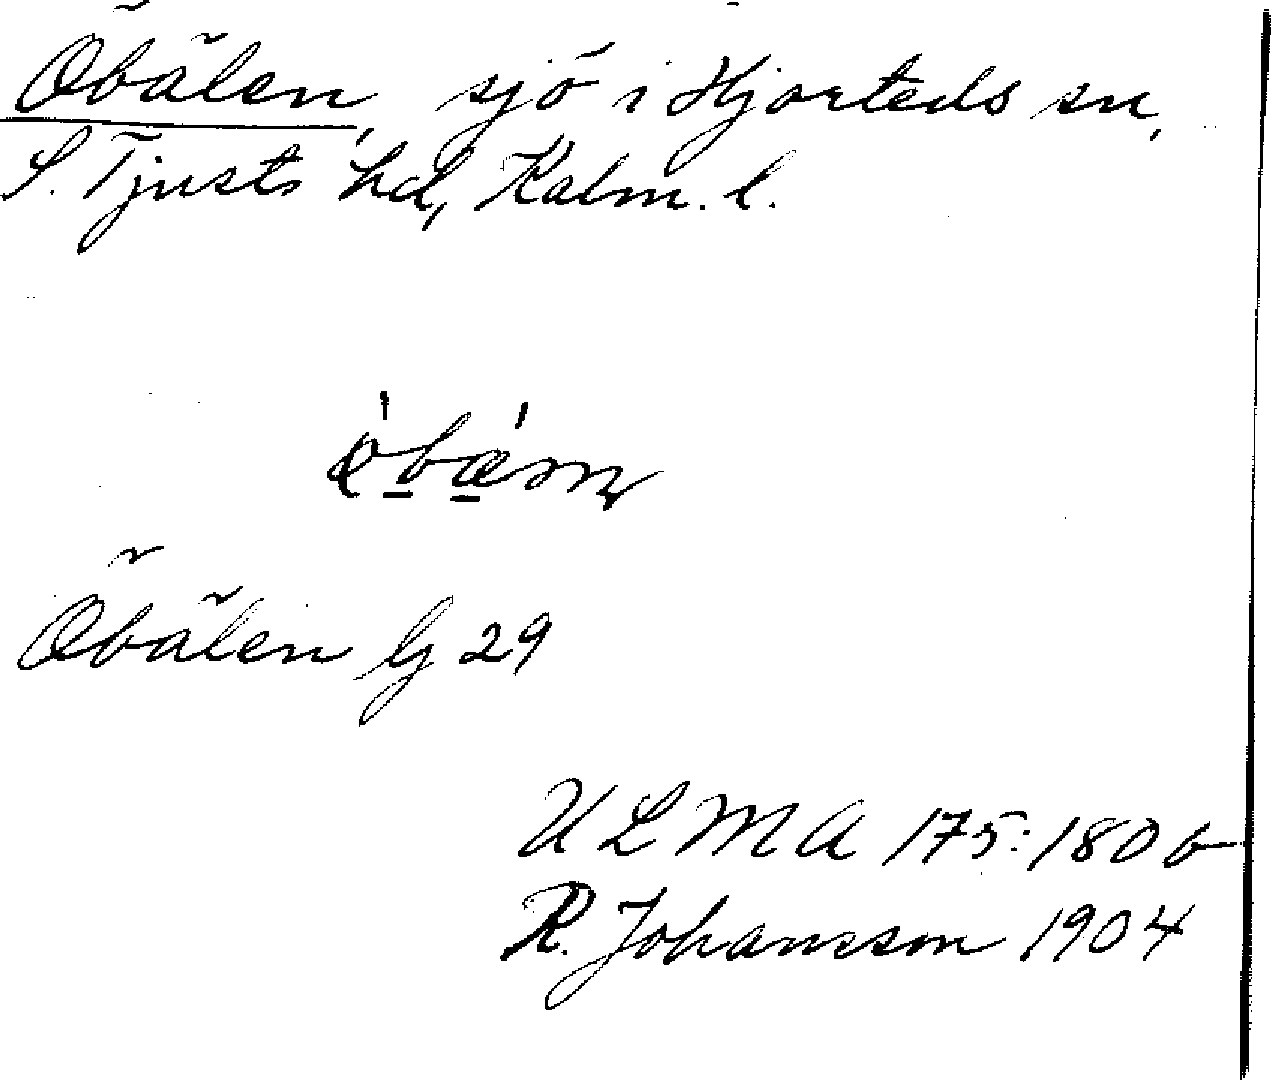 Öbälen, sjö i Hjorteds sn,
S. Tjusts hd, Kalm. l.
Öbälen G 29
ULMA 175:180 b
R. Johansson 1904